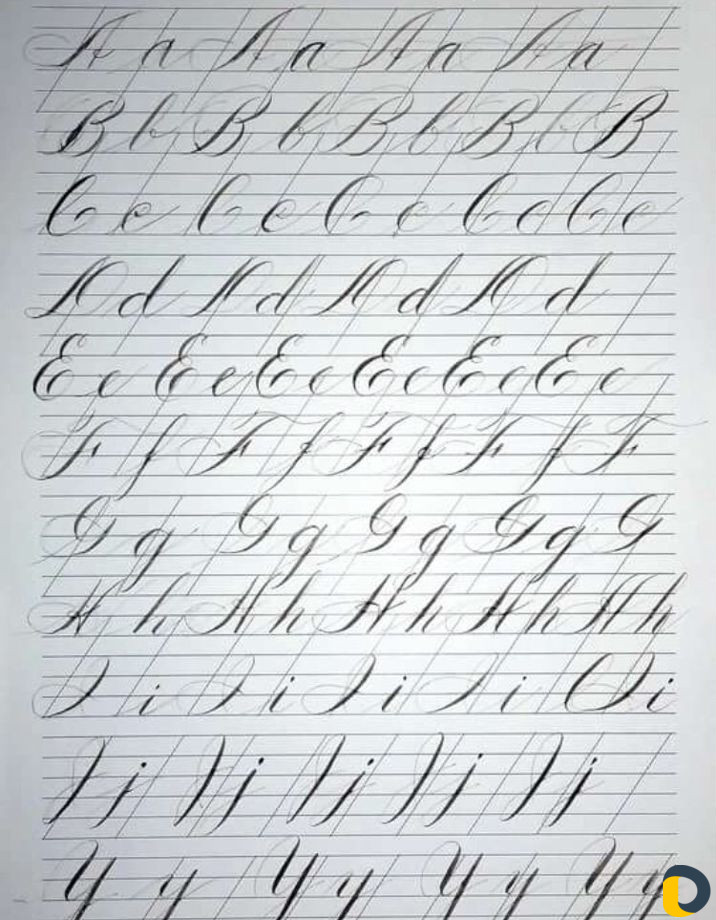 A a A a A a A a
B b B b B b B b B
C c C c C c C c C c
D d D d D d D d
E e E e E e E e E e E e
F f F f F f F f F
G g G g G g G g G
H h H h H h H h H h
I i I i I i I i I i
J j J j J j J j J j
Y y Y y Y y Y y